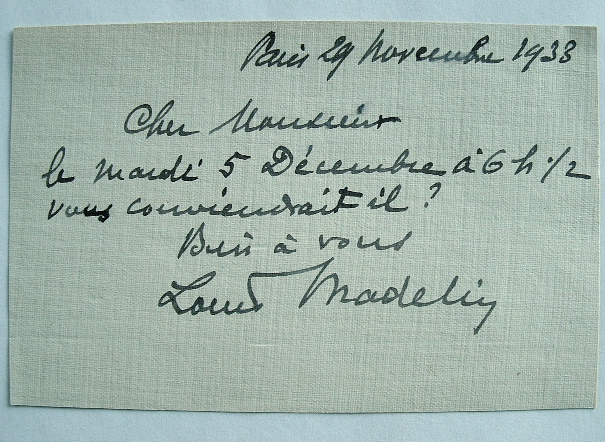 Paris 29 Novembre 1933
Cher Monsieur
le mardi 5 Décembre à 6 h 1/2
vous conviendrait il ?
Bien à vous
Louis Madelin